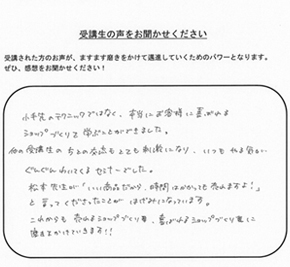 受講生の声をお聞かせください
受講された方のお声が、ますます磨きをかけて邁進していくためのパワーとなります。
ぜひ、感想をお聞かせください！
小手先のテクニックではなく、本当にお客様に喜ばれる
ショップづくりを学ぶことができました。
他の受講生の方との交流もとても刺激になり、いつもやる気が
ぐんぐんわいてくるセミナーでした。
松本先生が「いい商品だから、時間はかかっても売れますよ！」
と言ってくださったことが はげみになっています。
これからも 売れるショップづくり、喜ばれるショップづくりに
磨きをかけていきます!!